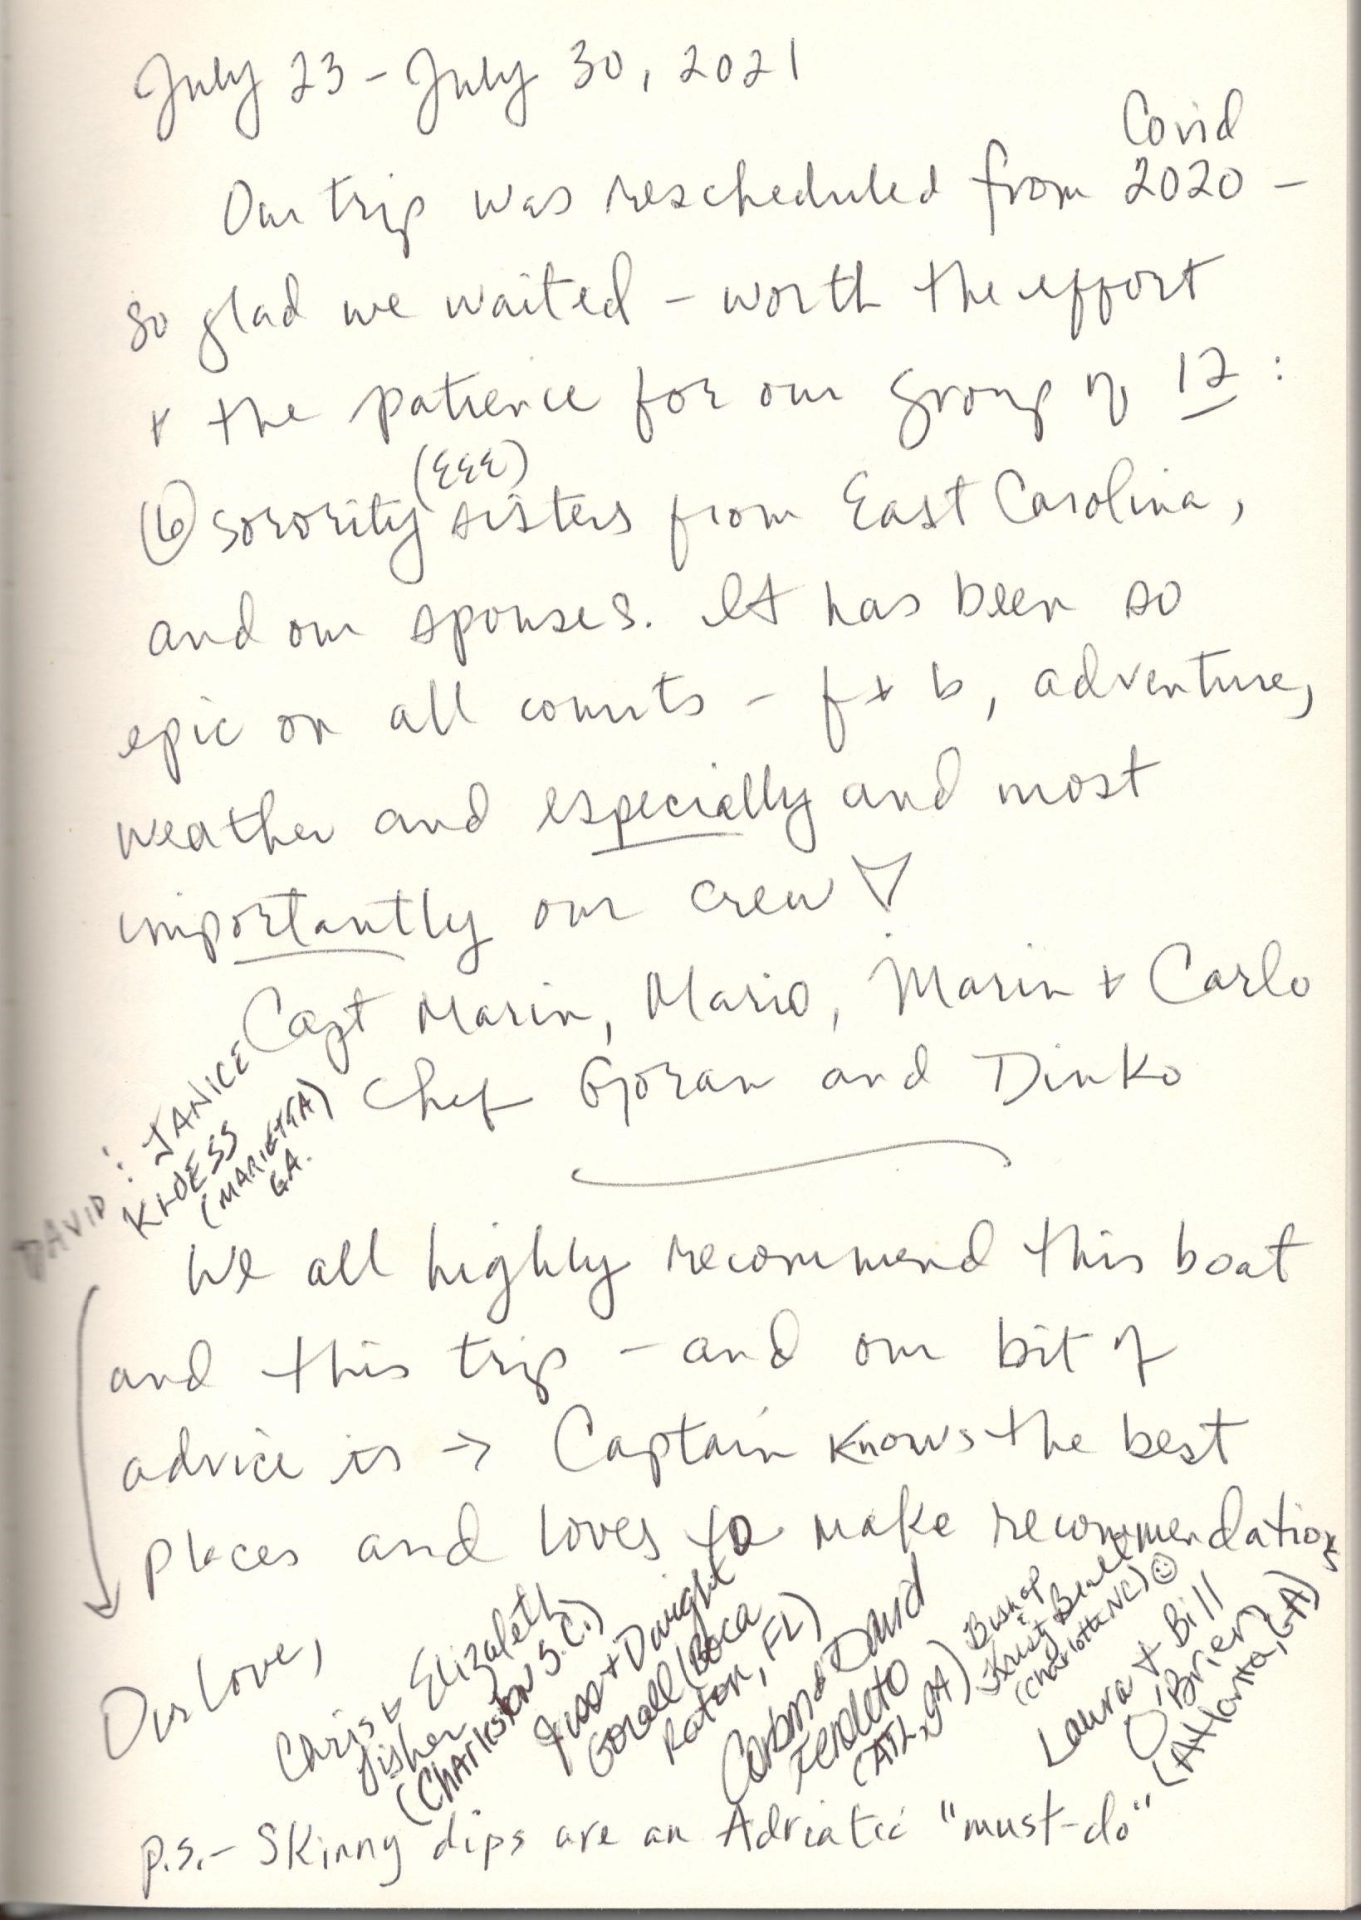 July 23 - July 30, 2021
Covid
Our trip was rescheduled from 2020 -
so glad we waited - worth the effort
+ the patience for our group of 12 :
(ΣΣΣ)
(6) sorority sisters from East Carolina,
and our spouses. It has been so
epic on all counts - f + b, adventure,
weather and especially and most
importantly our crew ♡
Capt Marin, Mario, Marin + Carlo
Chef Goran and Dinko
DAVID : JANICE
KLOESS
(MARIETTA)
GA.
We all highly recommend this boat
and this trip - and our bit of
advice is → Captain knows the best
places and loves to make recommendations
Our love,
Chris & Elizabeth
Fisher
(Charleston S.C.)
+ Dwight
(Boca
Raton, FL)
David
(ATL, GA)
Bishop
(Charlotte NC) ☺
Laura + Bill
O'Brien
(Atlanta, GA)
p.s. - Skinny dips are an Adriatic "must-do"